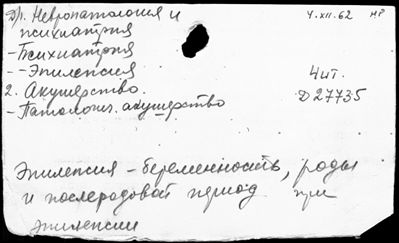 1. Невропатология и 4.XII.62 НР
психиатрия
- Психиатрия
-- Эпилепсия
Чит.
2. Акушерство. Д 27735
- Патологич. акушерство
Эпилепсия - беременность, роды
и послеродовой период при
эпилепсии